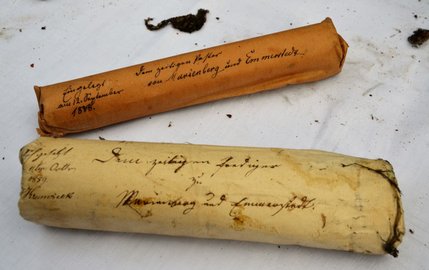 Dem zeitigen Pastor
von Marienberg und Emmerstedt.
Eingelegt
am 12. September
1888.
Dem zeitigen Prediger
zu
Marienberg und Emmerstedt.